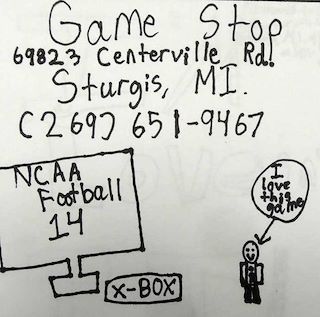 Game Stop
69823 Centerville Rd.
Sturgis, MI.
(269) 651-9467
NCAA
Football
14
X-BOX
I
love
this
game